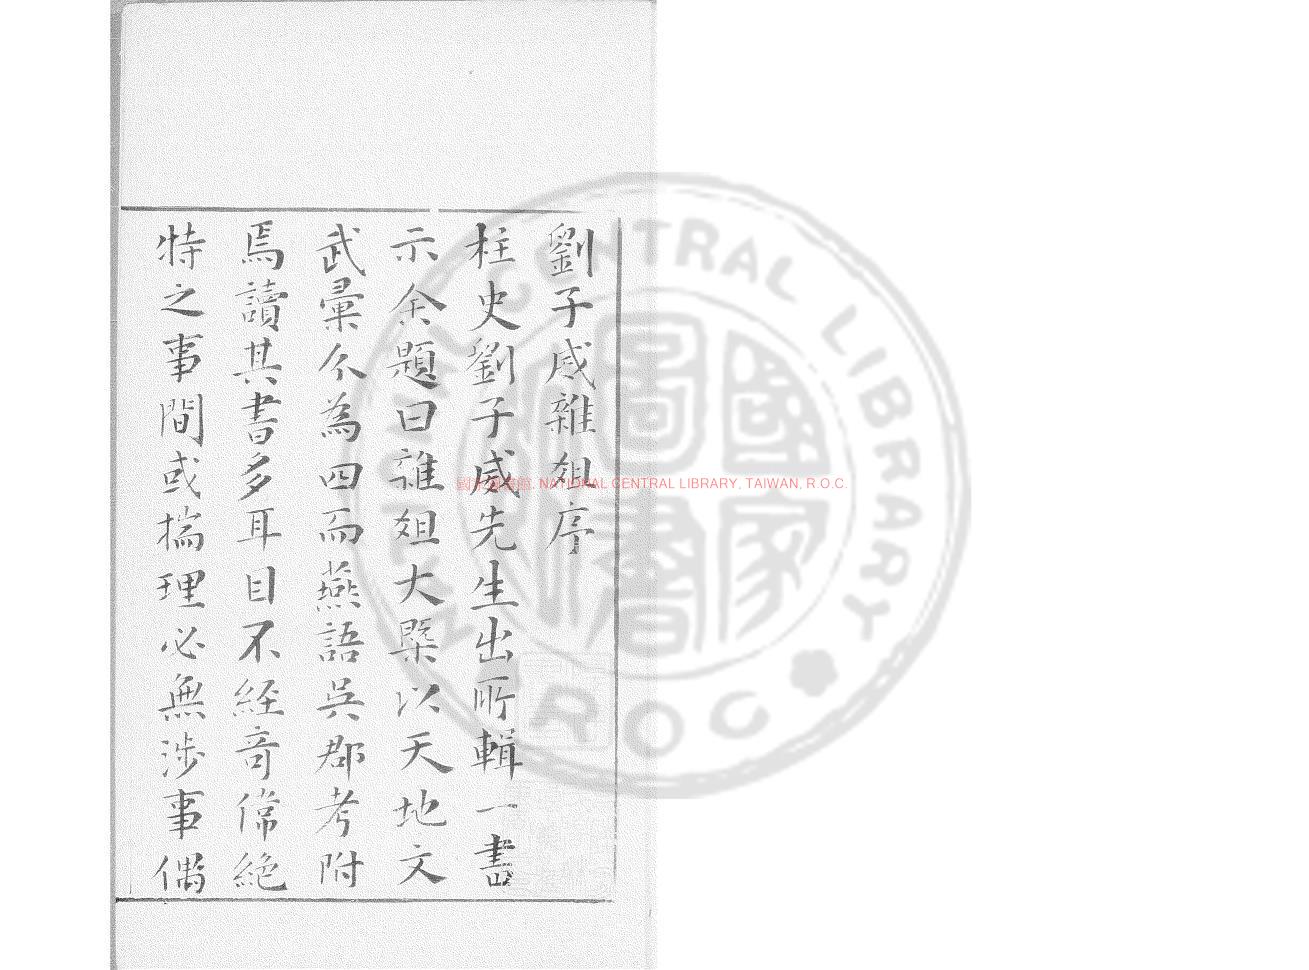 劉子威雜俎序
柱史劉子威先生出所輯一書
示余題曰雜俎大槩以天地文
武彙分為四而燕語吳郡考附
焉讀其書多耳目不經竒偉絶
特之事間或揣理必無涉事偶
國家圖書館, NATIONAL CENTRAL LIBRARY, TAIWAN, R.O.C.
NATIONAL CENTRAL LIBRARY
R O C
國家圖書